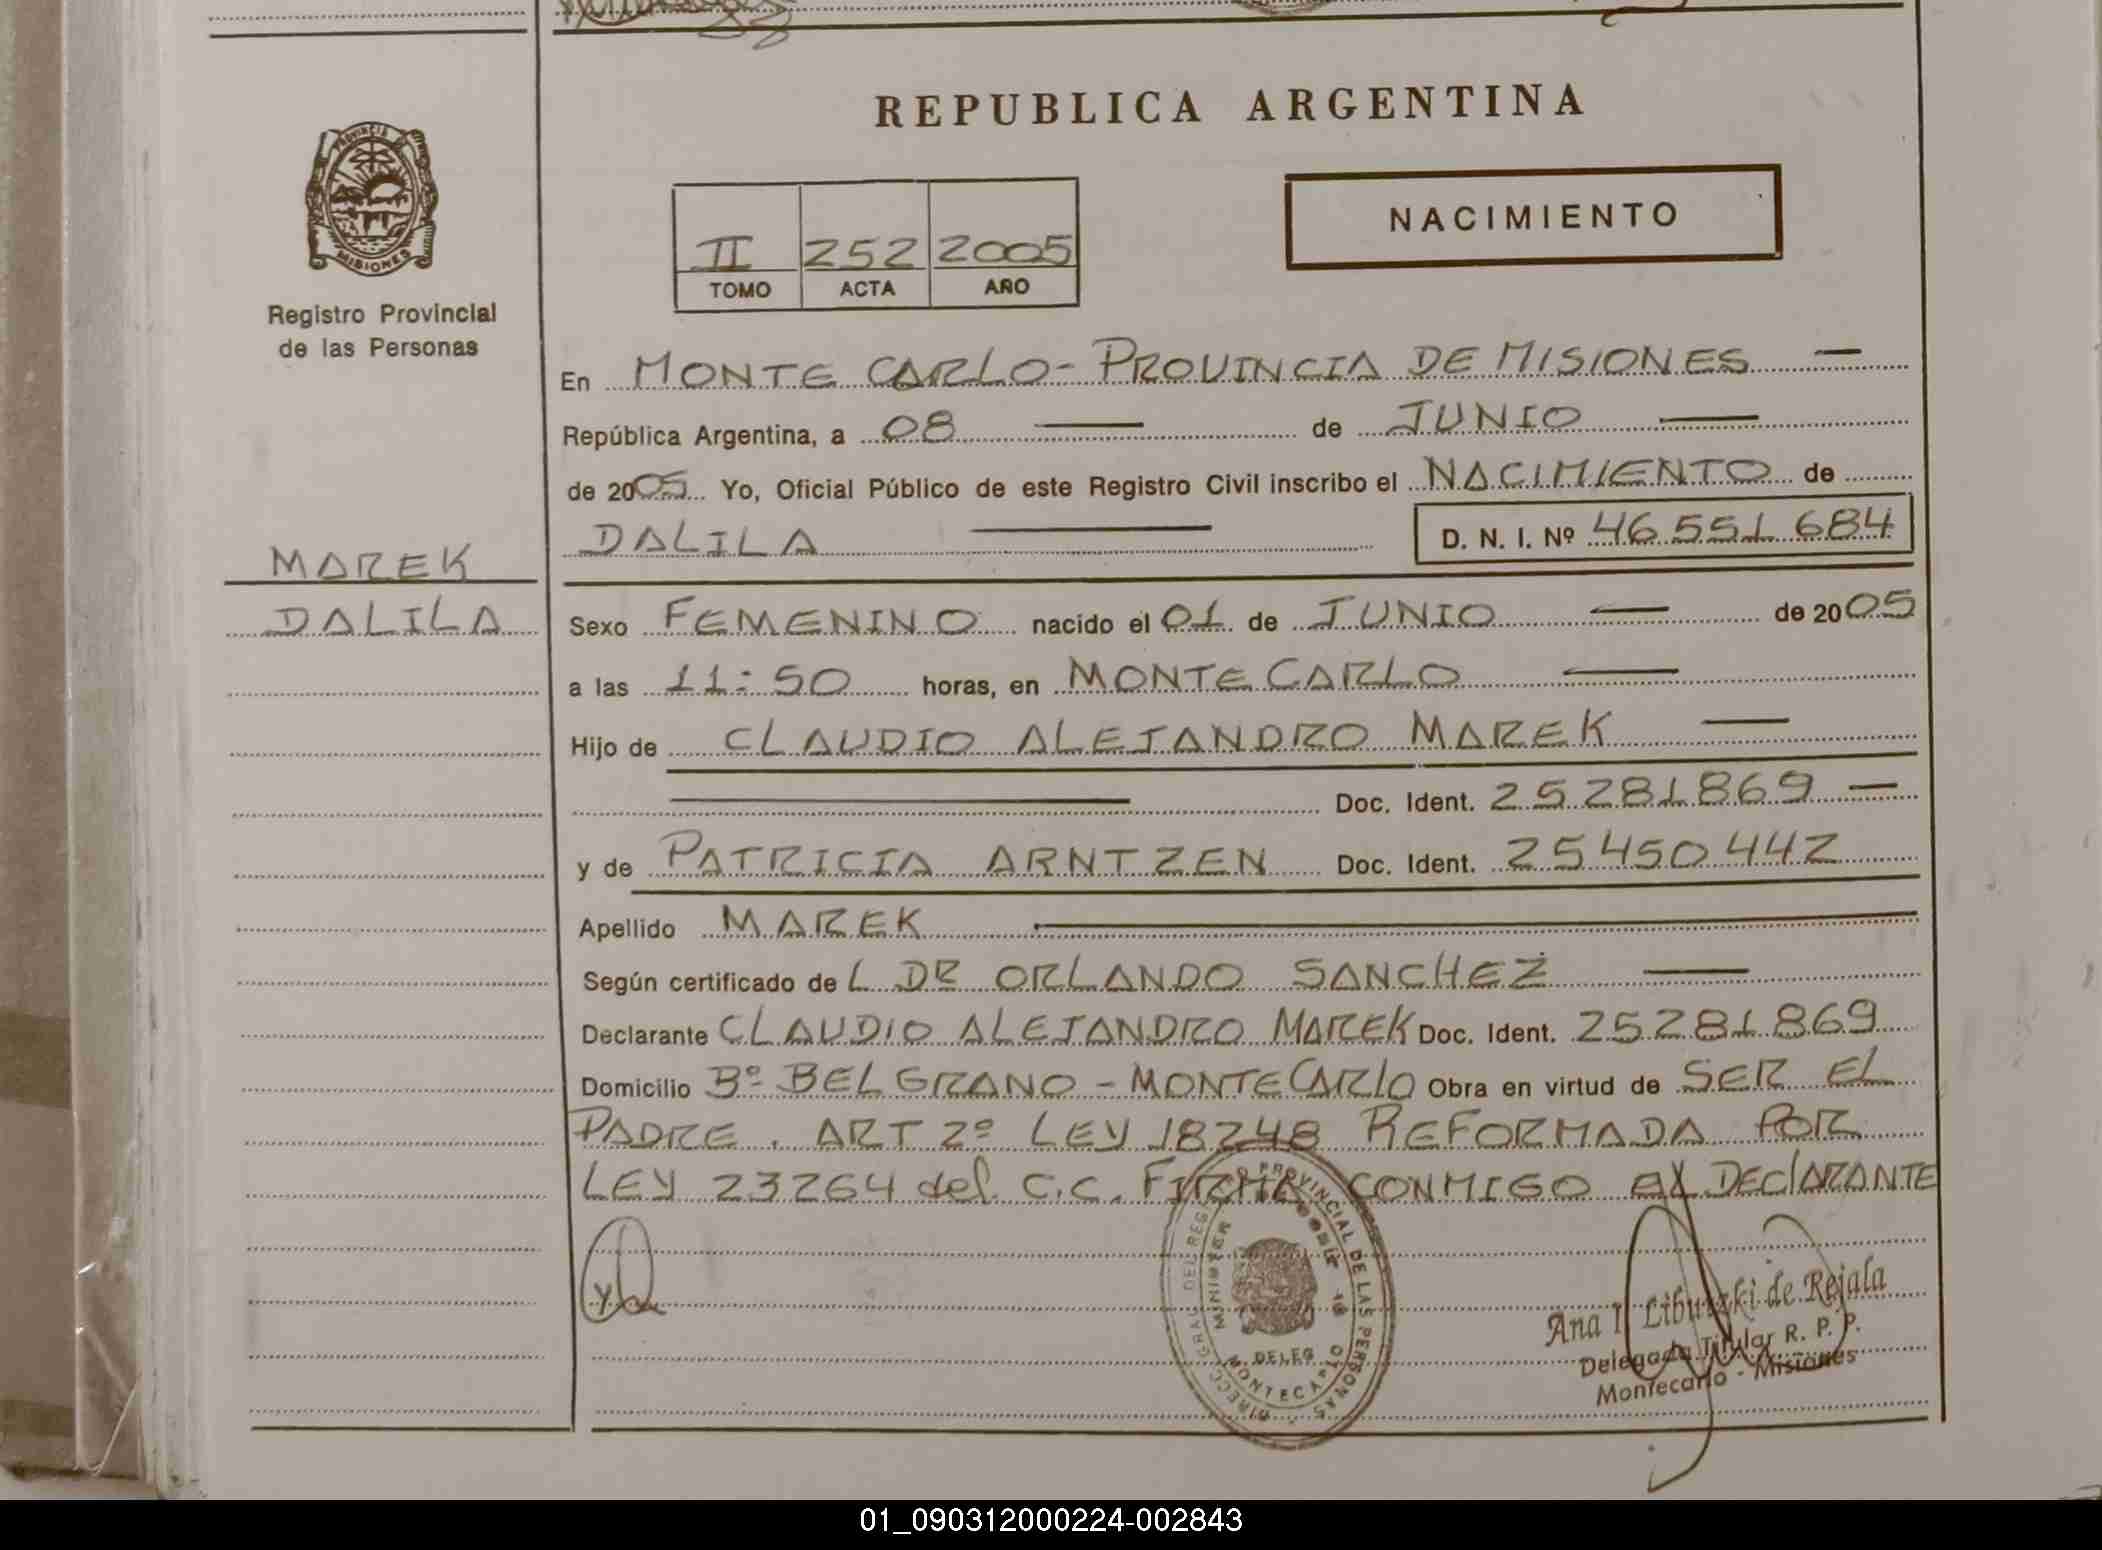 REPUBLICA ARGENTINA
PROVINCIA
MISIONES
Registro Provincial
de las Personas
NACIMIENTO
II 252 2005
TOMO ACTA AÑO
En MONTE CARLO - PROVINCIA DE MISIONES —
República Argentina, a 08 — de JUNIO —
de 2005 Yo, Oficial Público de este Registro Civil inscribo el NACIMIENTO de
DALILA — D. N. I. Nº 46 551 684
MAREK
DALILA
Sexo FEMENINO nacido el 01 de JUNIO — de 2005
a las 11:50 horas, en MONTE CARLO —
Hijo de CLAUDIO ALEJANDRO MAREK —
— Doc. Ident. 25281869 —
y de PATRICIA ARNTZEN Doc. Ident. 25450442
Apellido MAREK —
Según certificado de L DR ORLANDO SANCHEZ —
Declarante CLAUDIO ALEJANDRO MAREK Doc. Ident. 25281869
Domicilio Bº BELGRANO - MONTECARLO Obra en virtud de SER EL
PADRE. ART 2º LEY 18248 REFORMADA POR
LEY 23264 del C.C. FIRMA CONMIGO EL DECLARANTE
PROVINCIAL DE LAS PERSONAS
DELEG
MONTECARLO
Ana I. de Rejala
Delegada Titular R. P. P.
Montecarlo - Misiones
01_090312000224-002843